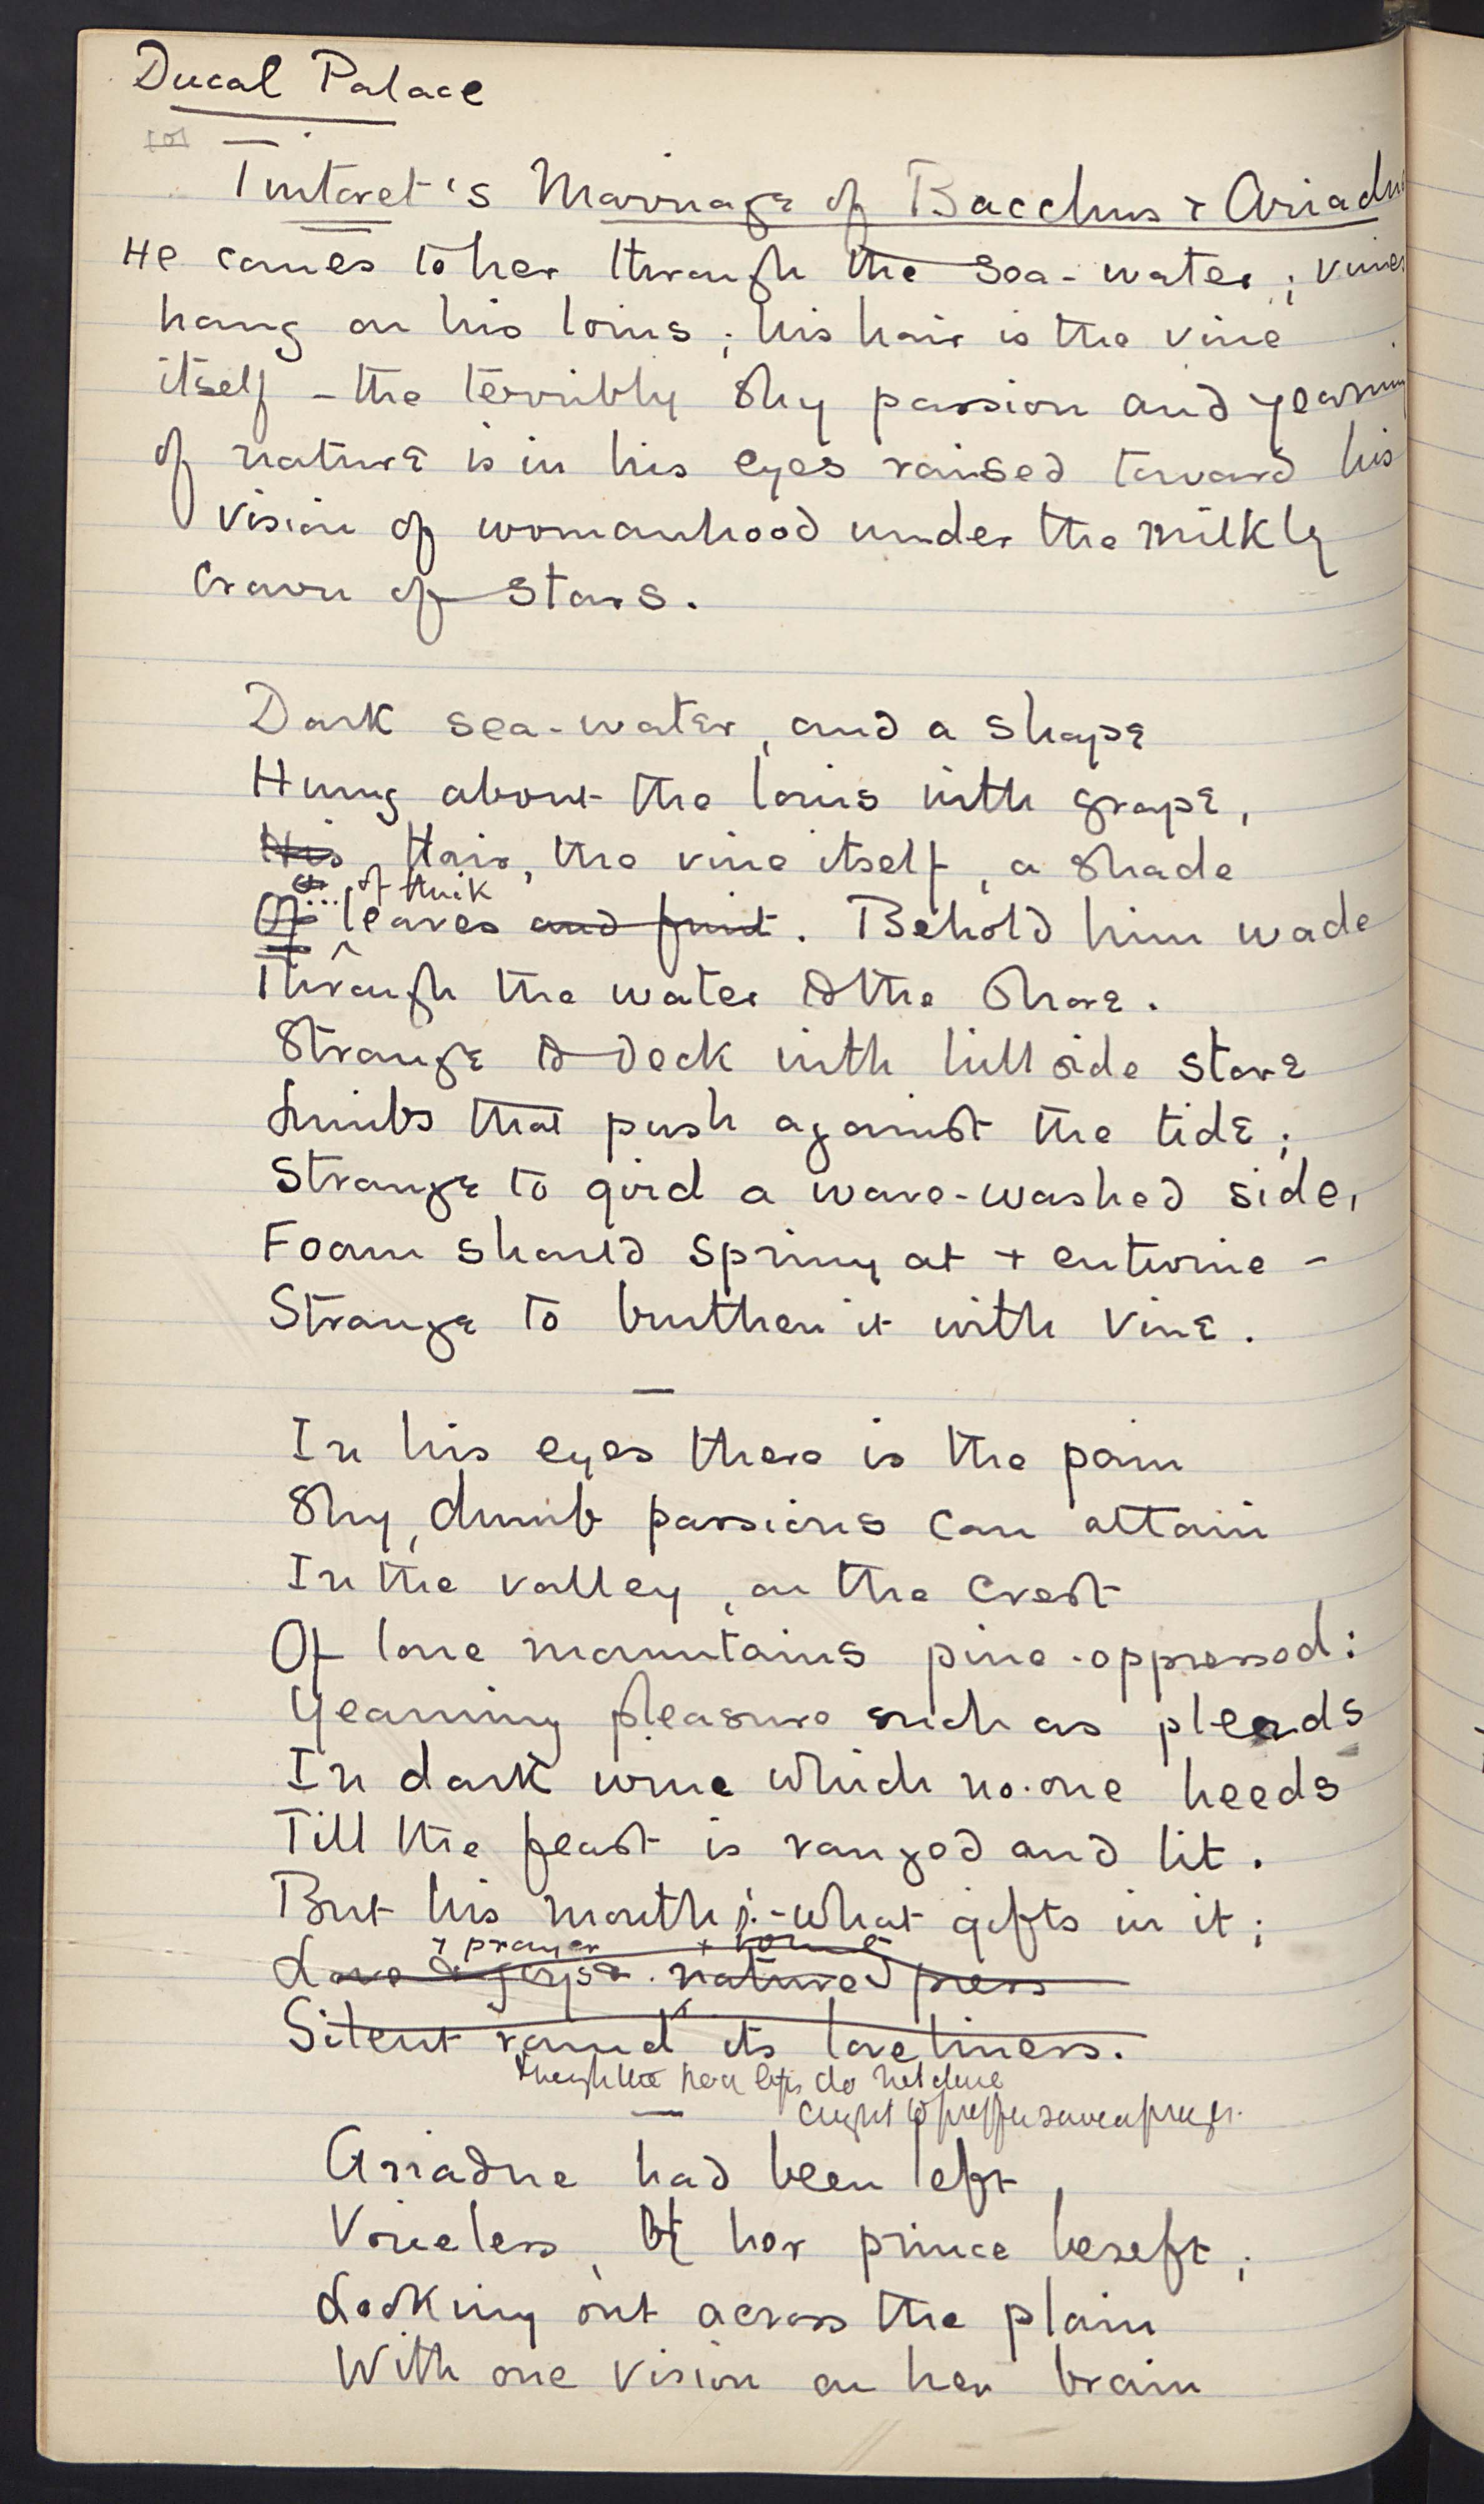 Ducal Palace
Tintoret's Marriage of Bacchus & Ariadne
He comes to her through the sea-water; vines
hang on his loins; his hair is the vine
itself – the terribly shy passion and yearning
of nature is in his eyes raised toward his
vision of womanhood under the milkly
crown of stars.
Dark sea-water, and a shape
Hung about the loins with grape,
His Hair, the vine itself, a shade
of thick
Of leaves and fruit. Behold him wade
Through the water to the shore.
Strange to deck with hill side store
Limbs that push against the tide;
Strange to gird a wave-washed side,
Foam should spring at + entwine –
Strange to burthen it with vine.
—
In his eyes there is the pain
Shy, dumb passions can attain
In the valley, on the crest
Of lone mountains pine-oppressed:
Yearning pleasure such as pleads
In dark wine which no-one heeds
Till the feast is ranged and lit.
But his mouth! – what gifts in it;
& prayer
Love natured press
Silent round its loveliness.
Though the lips do not dare
aught to proffer save a prayer.
—
Ariadne had been left,
Voiceless, of her prince bereft;
Looking out across the plain
With one vision on her brain